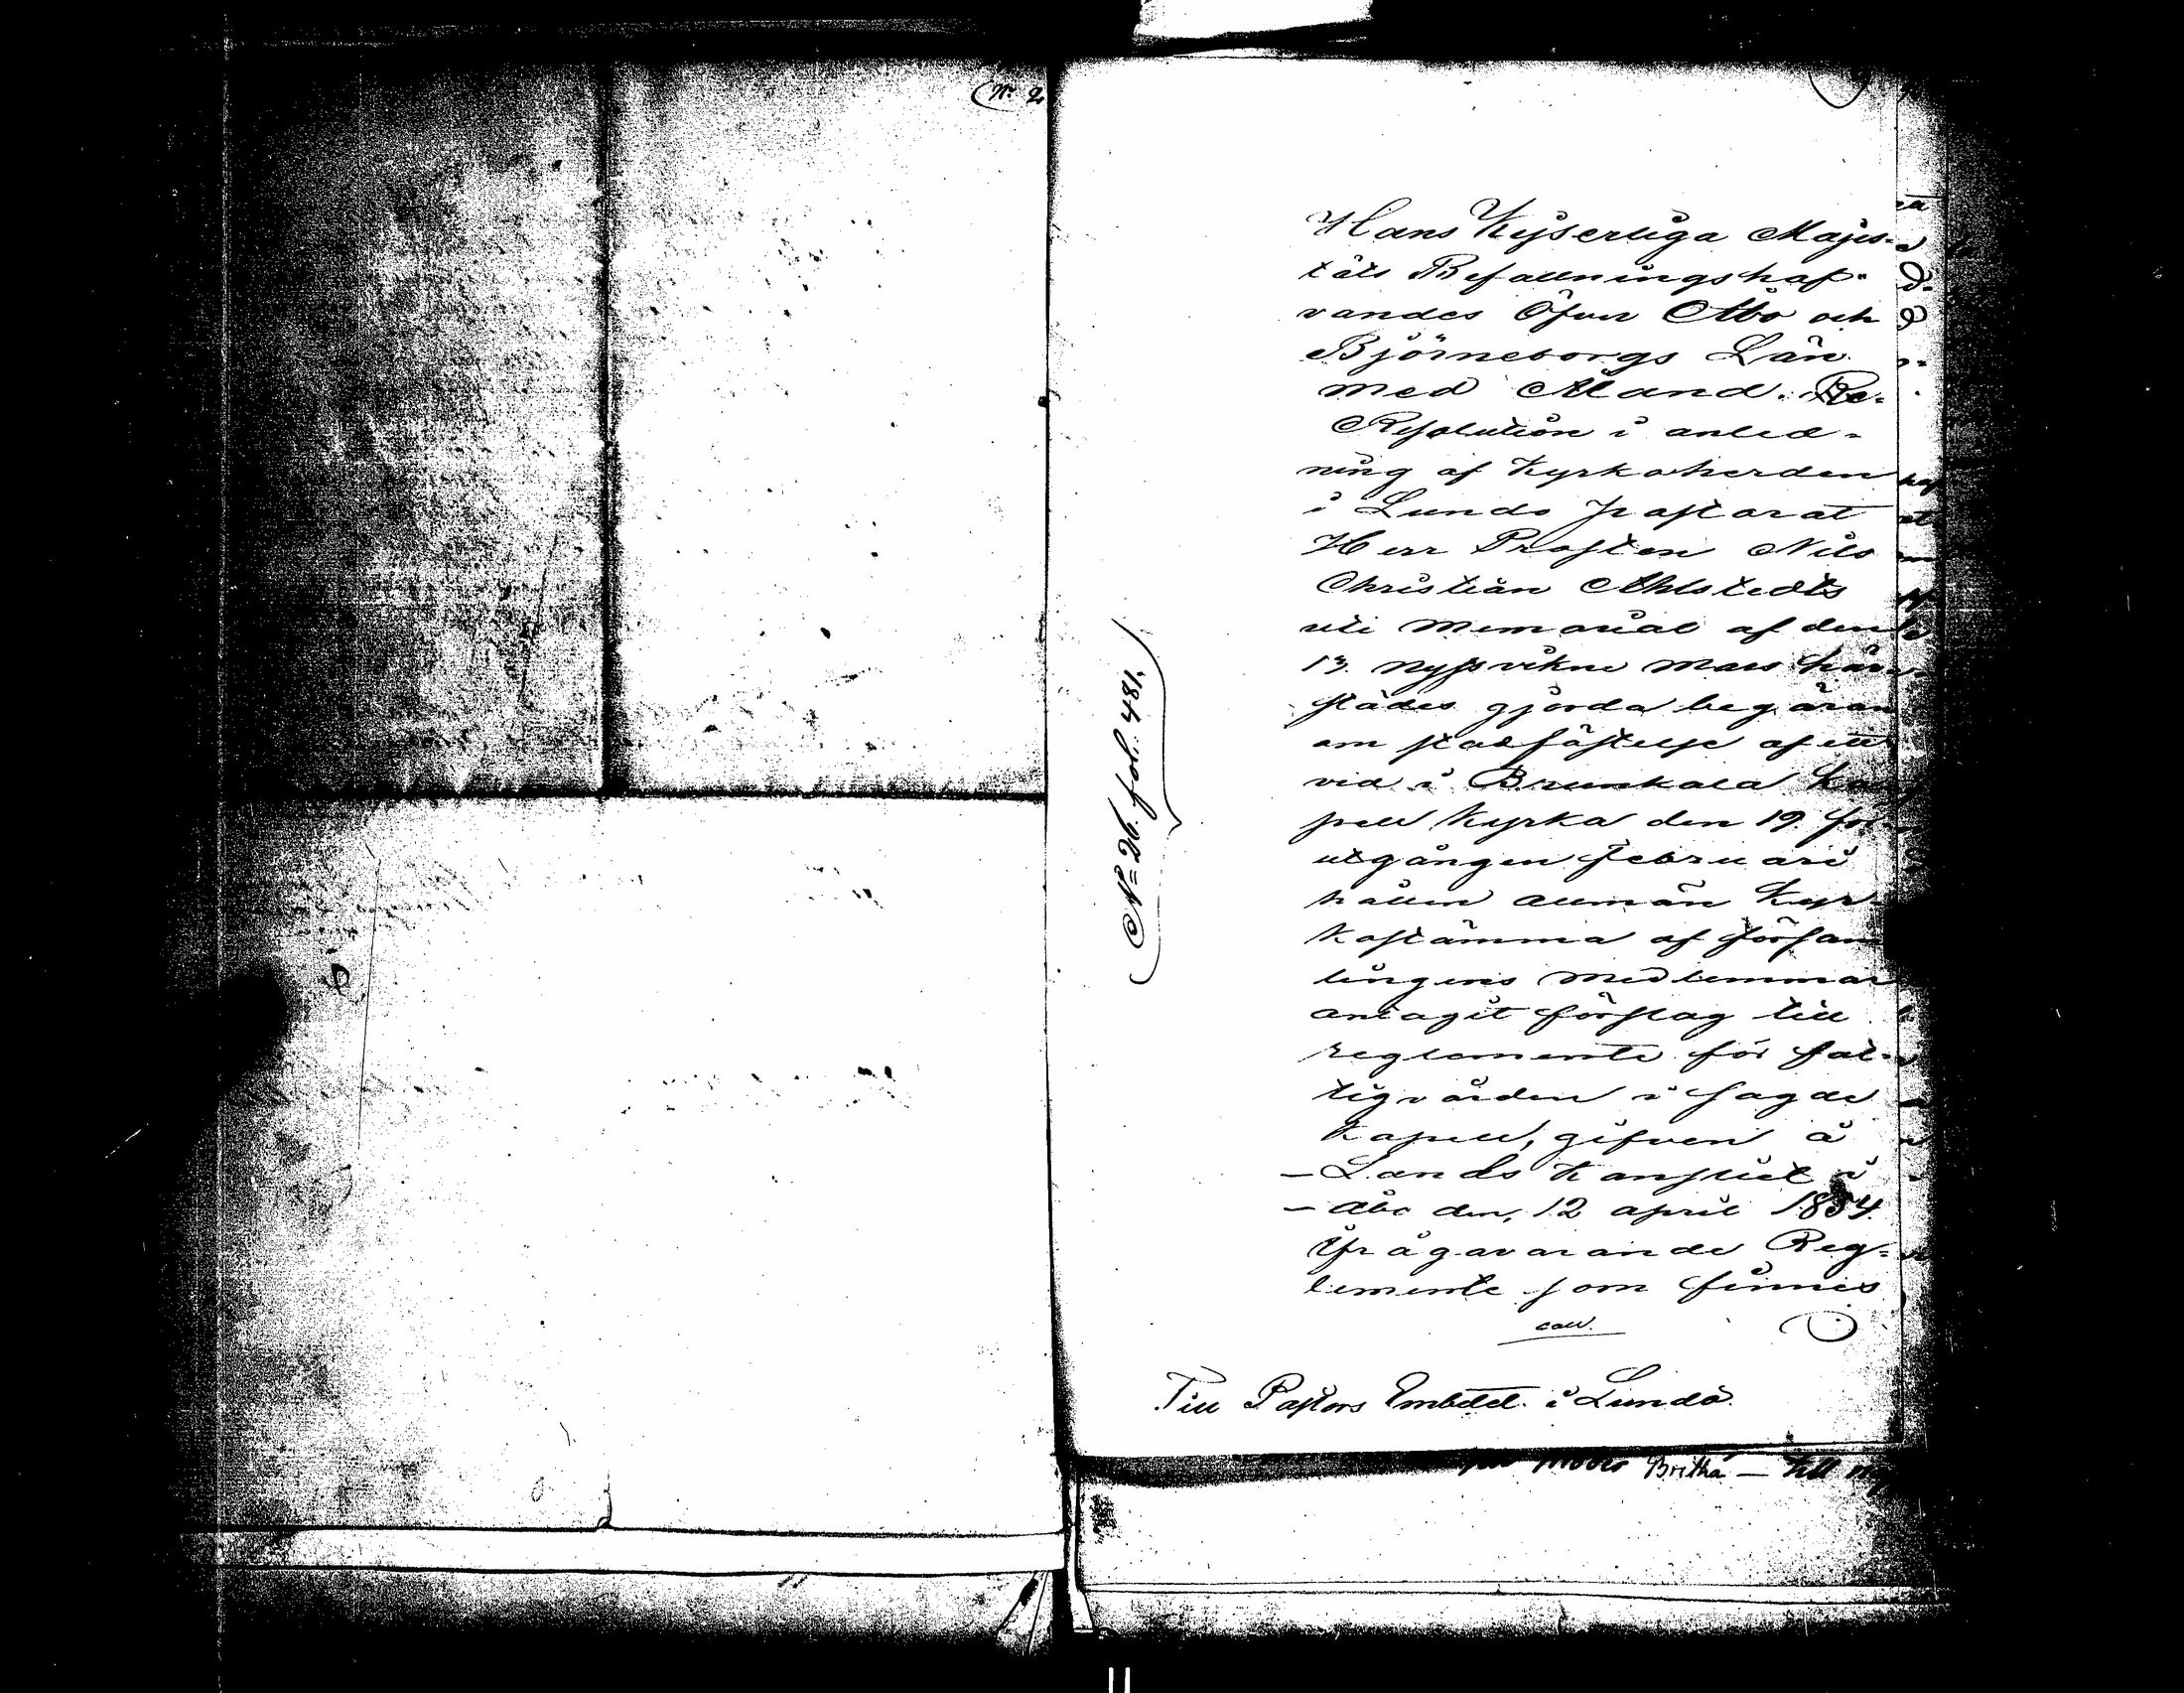 N: 2
N= 26. fol: 481.
Hans Kejserliga Majes-
täts Befallningshaf-
vandes Öfver Åbo och
Björneborgs Län
med Åland. Re-
Resolution i anled-
ning af Kyrkoherden
i Lundo pastorat
Herr Prosten Nils
Christian Ahlstedts
uti memorial af den
13. nyssvikne mars här-
städes gjorda begäran
om stadfästelse af ett
vid i Brunkala Ka
pell Kyrka den 19. 
utgången februari
hållen allmän Kyr
kostämma af försam
lingens medlemmar
antagit förslag till
reglemente för fat-
tigvården i sagde
Kapell, gifven å
– Lands Kansliet i
– Åbo den, 12 april 1854.
Ifrågavarande Reg-
lemente som finnes
coll.
Till Pastors Embetet i Lundo
Britha – till